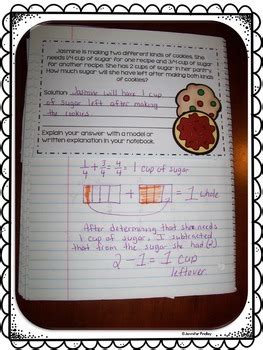 Jasmine is making two different kinds of cookies. She
needs 1/4 cup of sugar for one recipe and 3/4 cup of sugar
for another recipe. She has 2 cups of sugar in her pantry.
How much sugar will she have left after making both kinds
of cookies?
Solution: Jasmine will have 1 cup
of sugar left after making
the cookies.
Explain your answer with a model or
written explanation in your notebook.
1/4 + 3/4 = 4/4 = 1 cup of sugar
+ = 1 whole
After determining that she needs
1 cup of sugar, I subtracted
that from the sugar she had (2).
2 - 1 = 1 cup
leftover
©Jennifer Findley